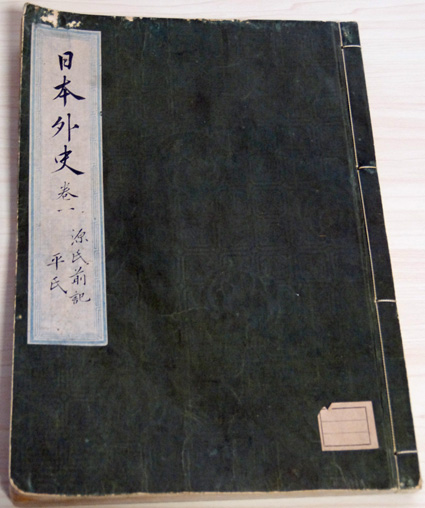 日本外史 巻一
源氏前記
平氏